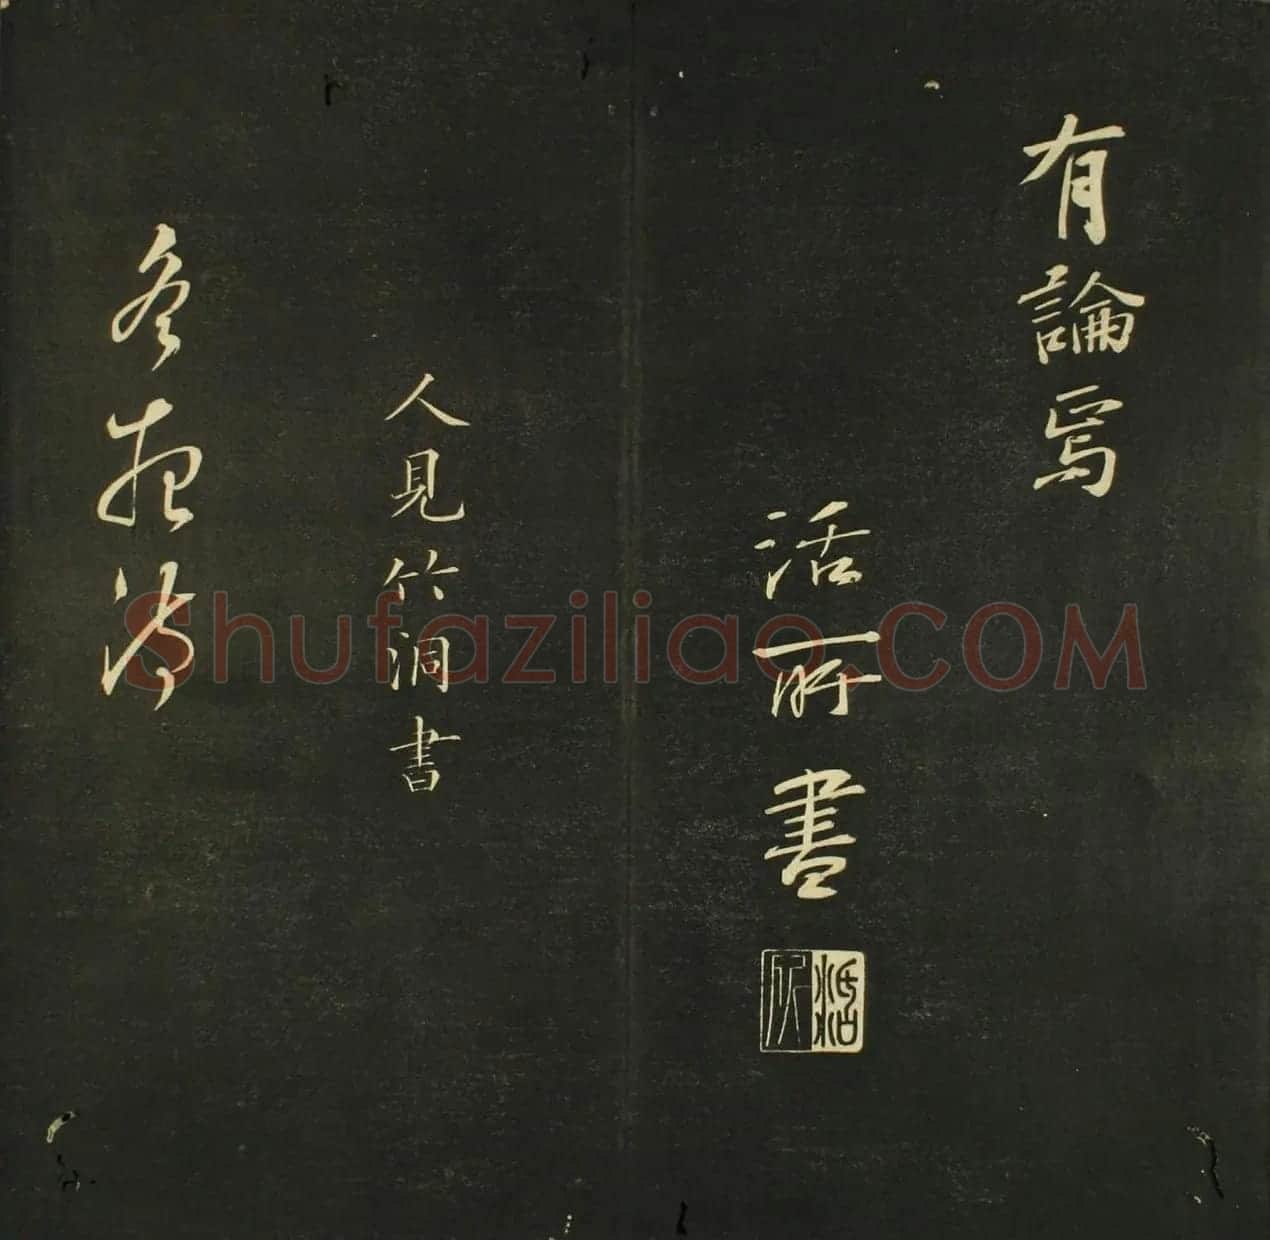 有論焉
活所書
活所
人見竹洞書
冬夜箏
Shufaziliao.COM